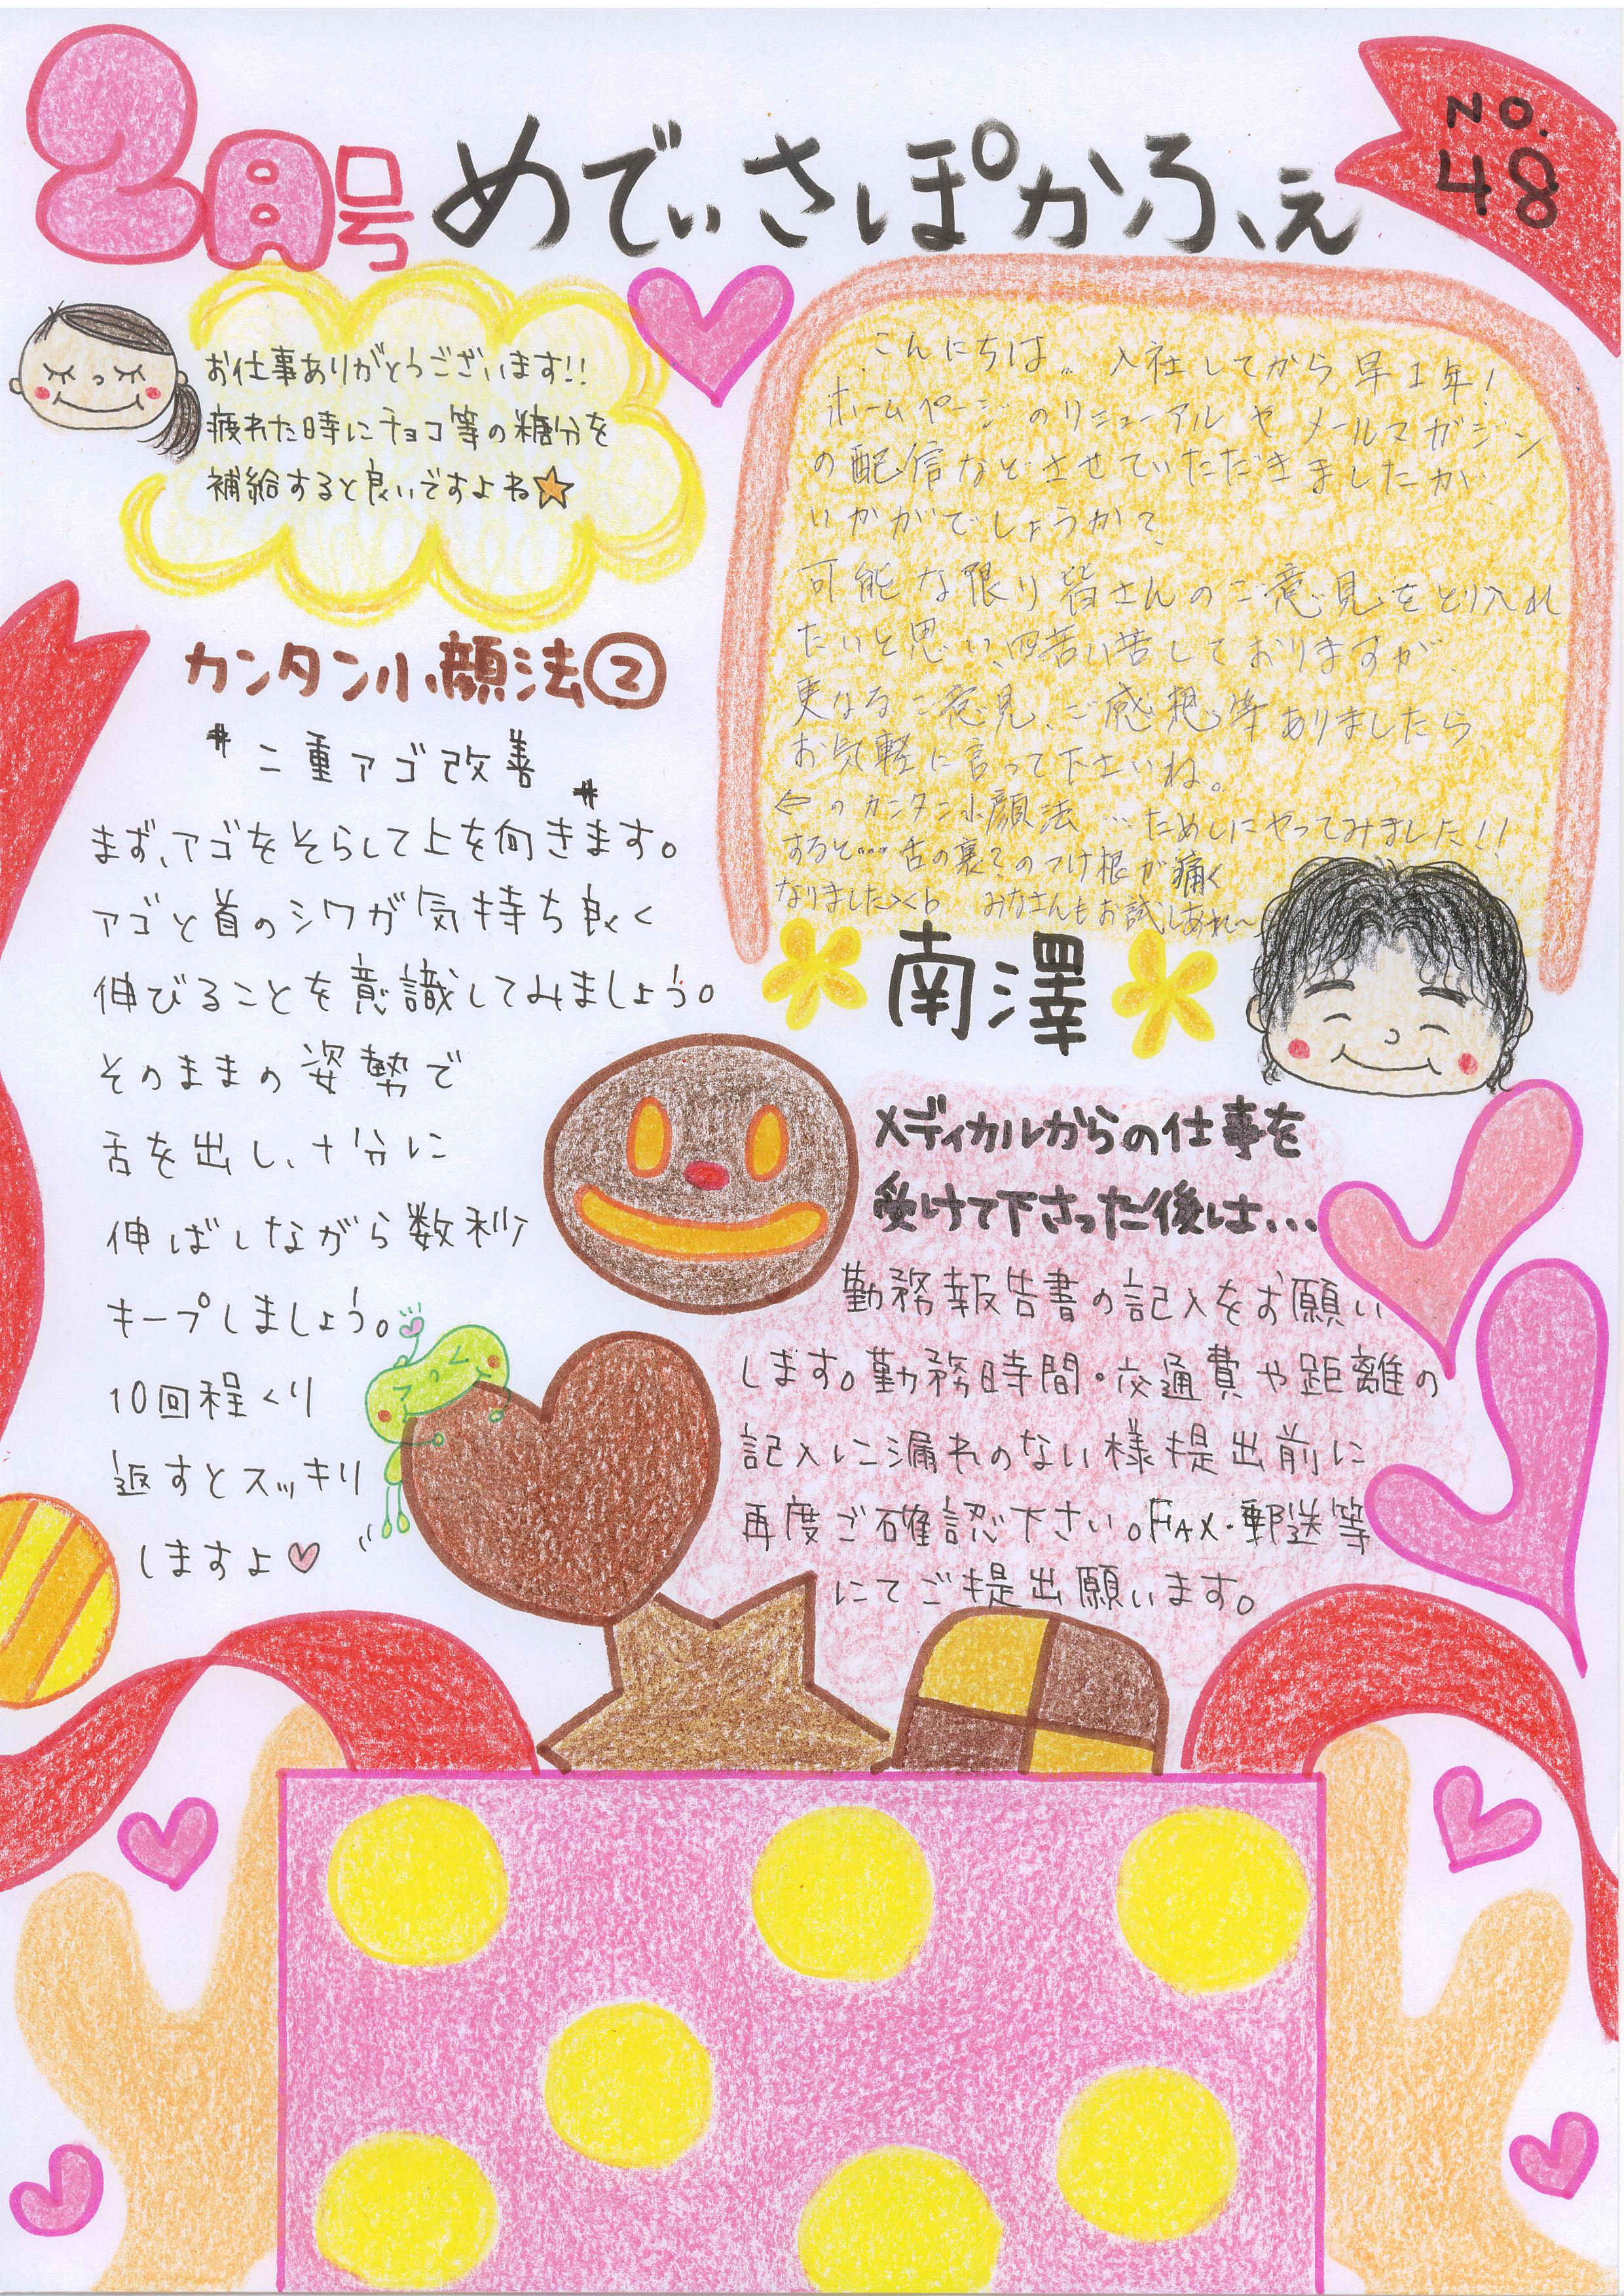 2月号 めでぃさぽかふぇ
NO.
48
お仕事ありがとうございます!!
疲れた時にチョコ等の糖分を
補給すると良いですよね☆
こんにちは。入社してから早1年!
ホームページのリニューアルやメールマガジン
の配信などさせていただきましたが、
いかがでしょうか?
可能な限り皆さんのご意見をとり入れ
たいと思い、四苦八苦しておりますが、
更なるご意見、ご感想等ありましたら、
お気軽に言って下さいね。
⇦のカンタン小顔法…ためしにやってみました!!
すると…舌の裏?のつけ根が痛く
なりました><b みなさんもお試しあれ~
南澤
カンタン小顔法②
〃二重アゴ改善〃
まず、アゴをそらして上を向きます。
アゴと首のシワが気持ち良く
伸びることを意識してみましょう。
そのままの姿勢で
舌を出し、十分に
伸ばしながら数秒
キープしましょう。
10回程くり
返すとスッキリ
しますよ♡
メディカルからの仕事を
受けて下さった後は...
勤務報告書の記入をお願い
します。勤務時間・交通費や距離の
記入に漏れのない様提出前に
再度ご確認下さい。FAX・郵送等
にてご提出願います。